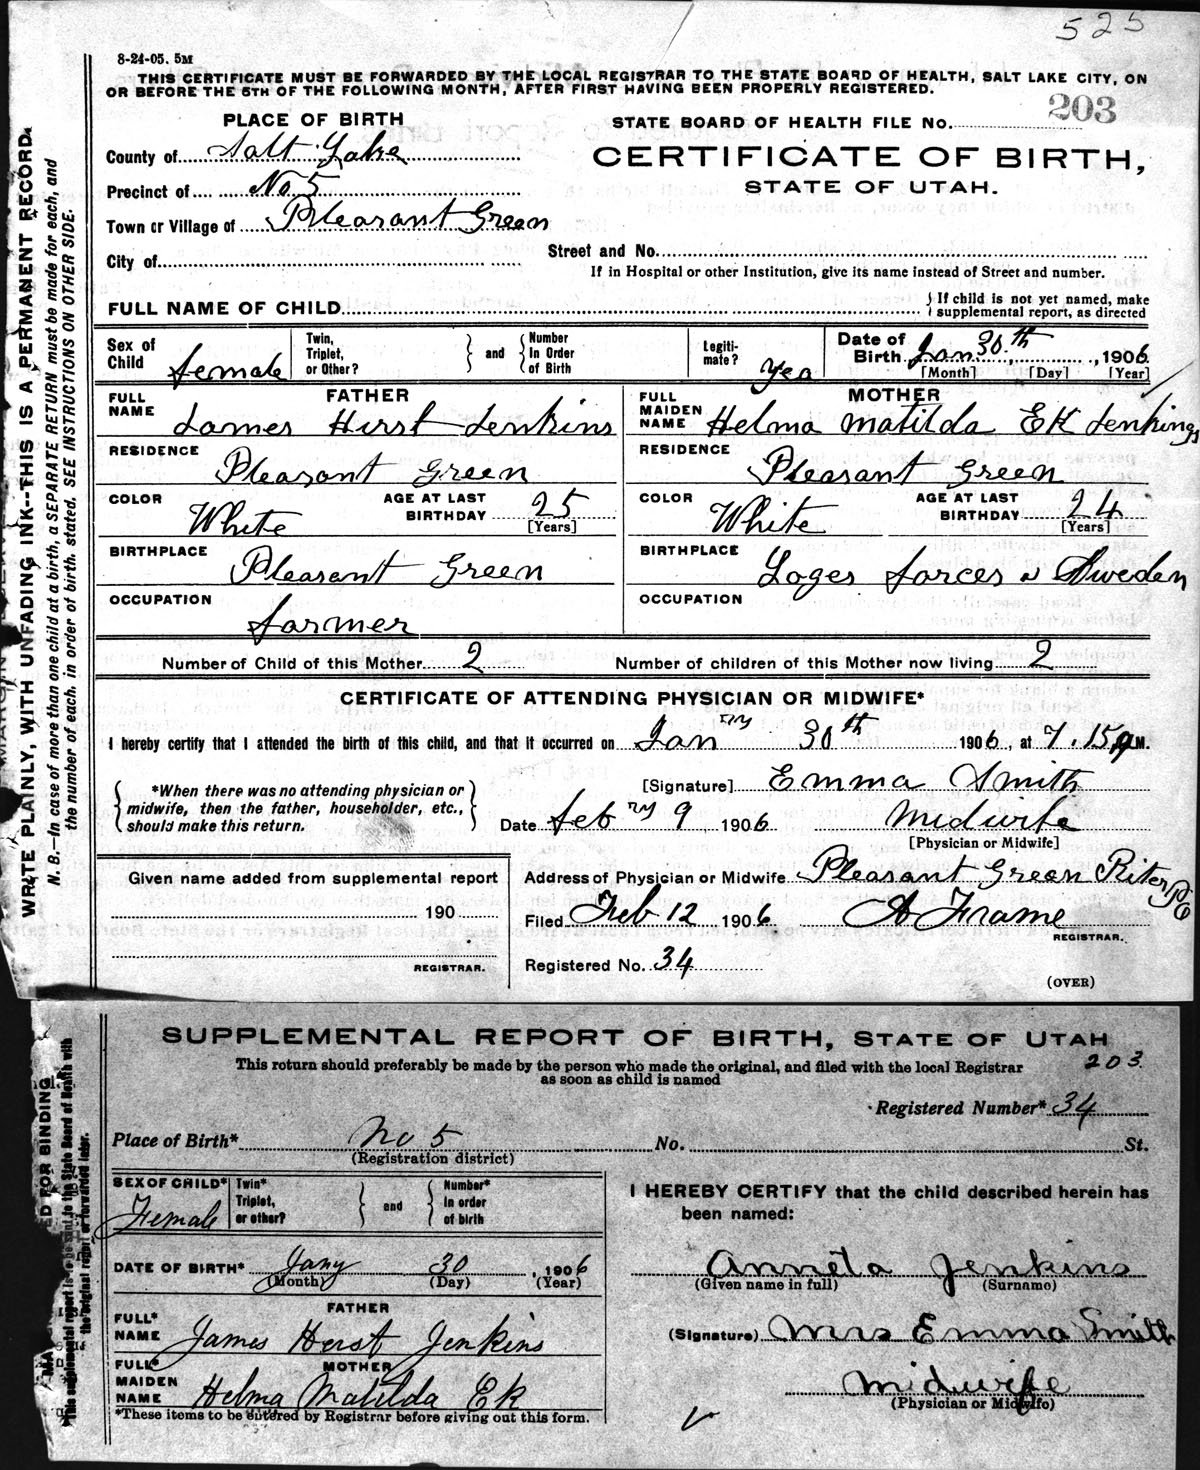 525
8-24-05. 5M
THIS CERTIFICATE MUST BE FORWARDED BY THE LOCAL REGISTRAR TO THE STATE BOARD OF HEALTH, SALT LAKE CITY, ON
OR BEFORE THE 5TH OF THE FOLLOWING MONTH, AFTER FIRST HAVING BEEN PROPERLY REGISTERED.
PLACE OF BIRTH
STATE BOARD OF HEALTH FILE No. 203
County of Salt Lake
CERTIFICATE OF BIRTH,
STATE OF UTAH.
Precinct of No 5
Town or Village of Pleasant Green
City of
Street and No.
If in Hospital or other Institution, give its name instead of Street and number.
FULL NAME OF CHILD
If child is not yet named, make
supplemental report, as directed
Sex of Child female
Twin, Triplet, or Other? and Number In Order of Birth
Legitimate? Yea
Date of Birth Jan 30th, 1906
[Month] [Day] [Year]
FATHER
FULL NAME James Hirst Jenkins
RESIDENCE Pleasant Green
COLOR White
AGE AT LAST BIRTHDAY 25
[Years]
BIRTHPLACE Pleasant Green
OCCUPATION farmer
MOTHER
FULL MAIDEN NAME Helma Matilda Ek Jenkings
RESIDENCE Pleasant Green
COLOR White
AGE AT LAST BIRTHDAY 24
[Years]
BIRTHPLACE Sweden
OCCUPATION
Number of Child of this Mother 2 Number of children of this Mother now living 2
CERTIFICATE OF ATTENDING PHYSICIAN OR MIDWIFE*
I hereby certify that I attended the birth of this child, and that it occurred on Janry 30th 1906, at 7.15 P M.
*When there was no attending physician or
midwife, then the father, householder, etc.,
should make this return.
[Signature] Emma Smith
Date Febry 9 1906 Midwife
[Physician or Midwife]
Given name added from supplemental report
190
REGISTRAR.
Address of Physician or Midwife Pleasant Green Riter PO
Filed Feb 12 1906 A Frame
REGISTRAR.
Registered No. 34
(OVER)
WRITE PLAINLY, WITH UNFADING INK--THIS IS A PERMANENT RECORD.
N. B.—In case of more than one child at a birth, a SEPARATE RETURN must be made for each, and
the number of each, in order of birth, stated. SEE INSTRUCTIONS ON OTHER SIDE.
SUPPLEMENTAL REPORT OF BIRTH, STATE OF UTAH
This return should preferably be made by the person who made the original, and filed with the local Registrar
as soon as child is named
203
Registered Number* 34
Place of Birth* No 5 No. St.
(Registration district)
SEX OF CHILD* Female
Twin* Triplet, or other? and Number* In order of birth
DATE OF BIRTH* Jany 30, 1906
(Month) (Day) (Year)
FATHER
FULL* NAME James Herst Jenkins
MOTHER
FULL* MAIDEN NAME Helma Matilda Ek
*These items to be entered by Registrar before giving out this form.
I HEREBY CERTIFY that the child described herein has
been named:
Anneta Jenkins
(Given name in full) (Surname)
(Signature) Mrs Emma Smith
Midwife
(Physician or Midwife)
ED FOR BINDING